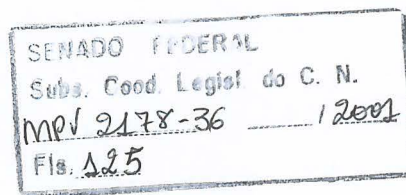 SENADO FEDERAL
Subs. Coord. Legisl. do C. N.
MPV 2178-36 / 2001
Fls. 125